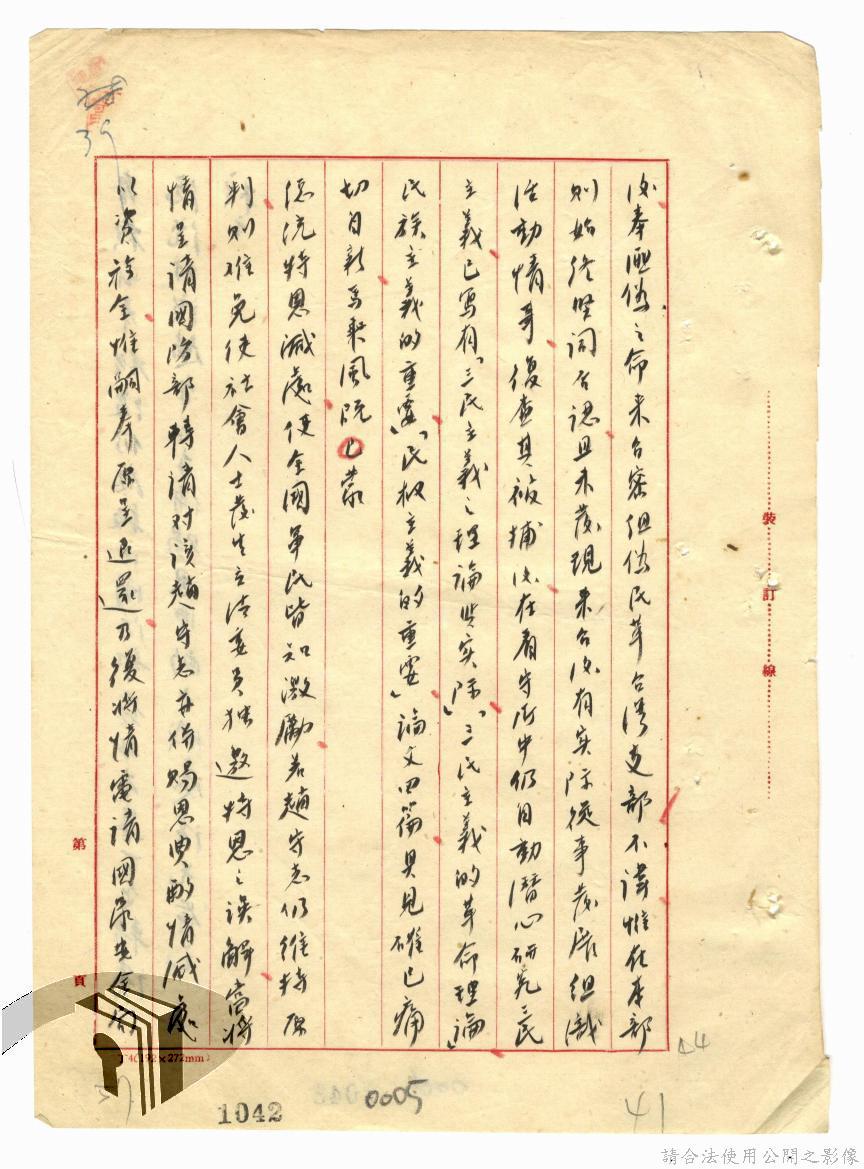 後奉匪偽之命來台密組偽民革台灣支部不諱惟在本部
則始終堅詞否認且未發現來台後有实际從事发展組織
活動情事復查其被捕後在看守所中仍自動潛心研究三民
主義已寫有「三民主義之理論與实际」「三民主義的革命理論」
民族主義的重要」「民权主義的重要」論文四篇具見確已痛
切自新為秉風既已蒙
總统特恩减處使全國軍民皆知激勵若趙守志仍維持原
判則难免使社會人士发生立法委員独邀特恩之误解當将
情呈請國防部轉請对该趙守志亦併賜恩典酌情减處
以资於全惟嗣奉原呈退還乃復将情電請國家安全局
裝訂線
第
頁
T4(192×272mm)
39
1042
0005
41
44
請合法使用公開之影像